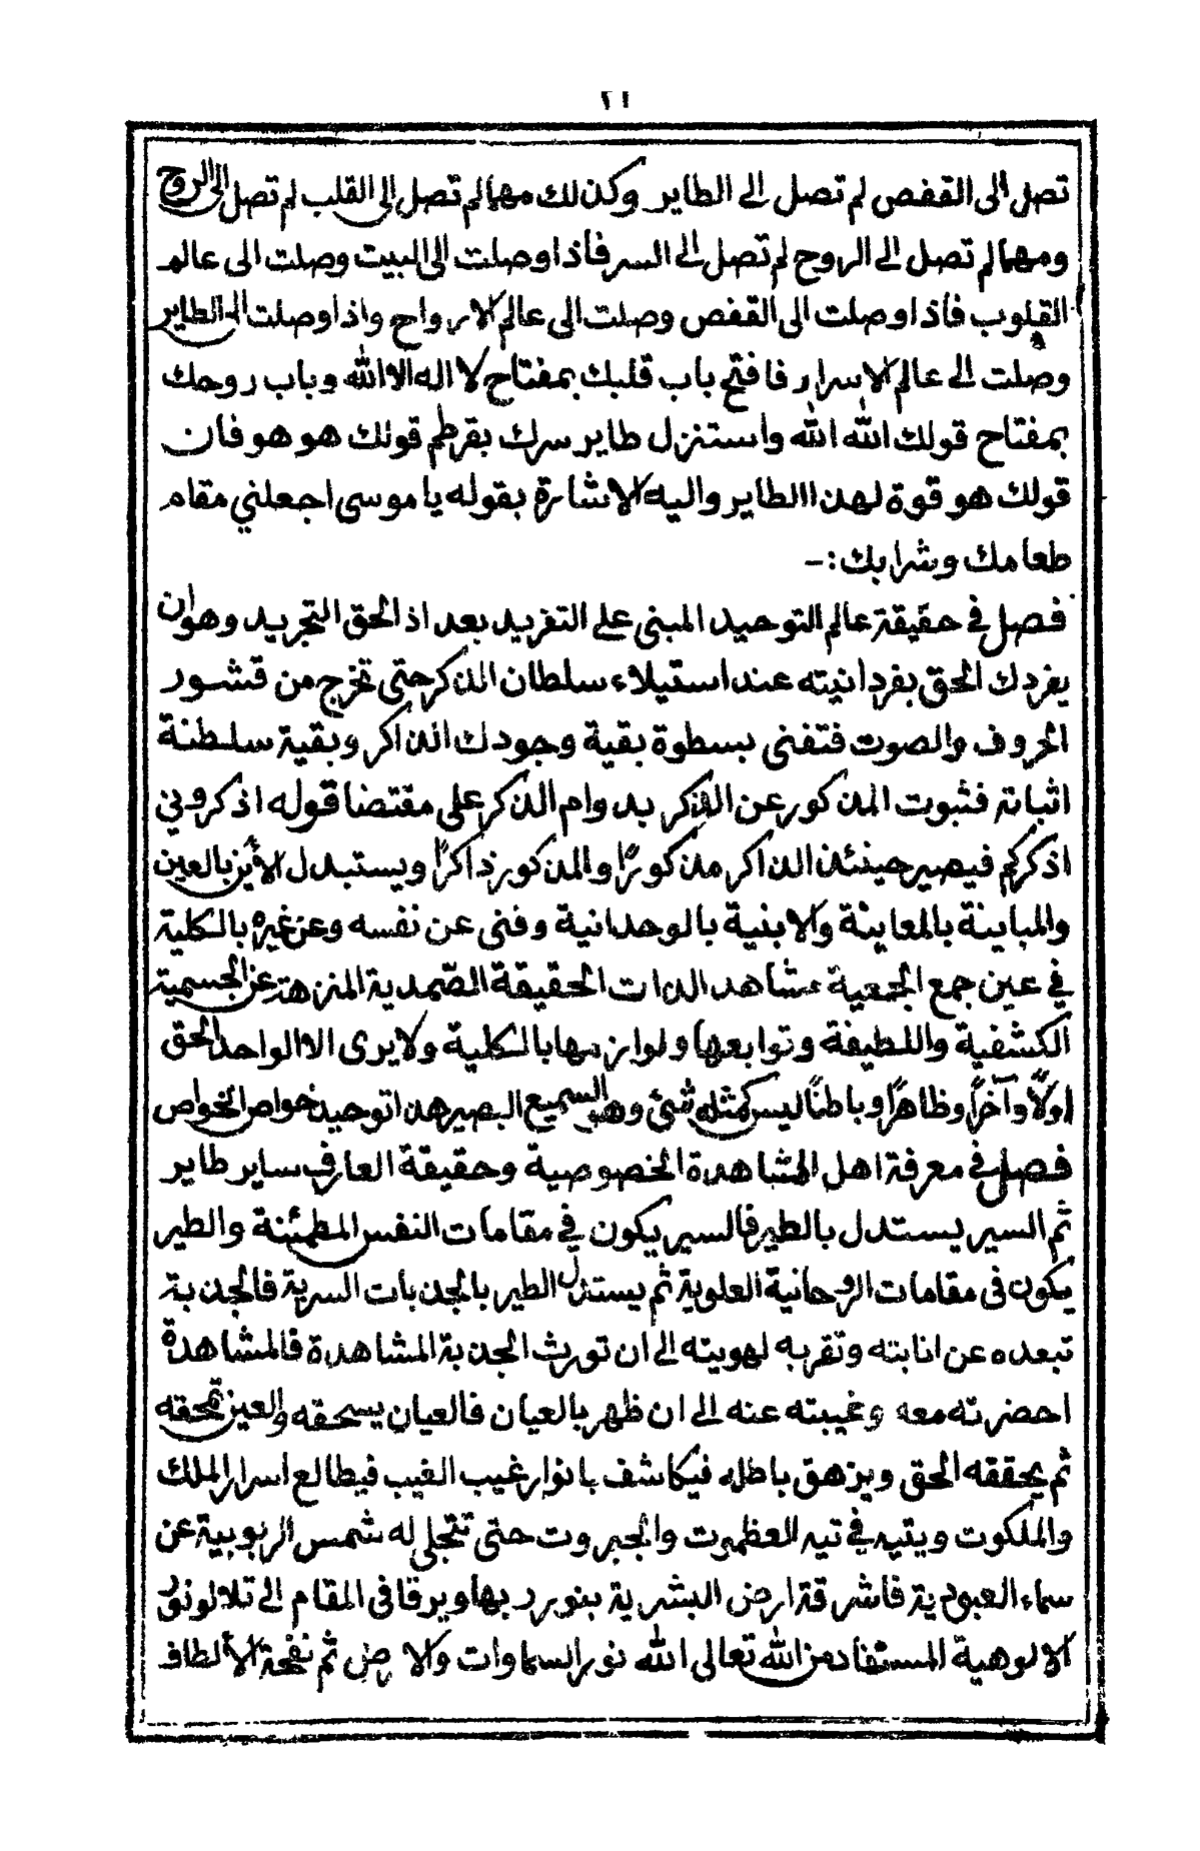 ٢١
تصل الى القفص لم تصل الى الطاير وكذلك مهما لم تصل الى القلب لم تصل الى الروح
ومهما لم تصل الى الروح لم تصل الى السر فأذا وصلت الى البيت وصلت الى عالم
القلوب فأذا وصلت الى القفص وصلت الى عالم الارواح واذا وصلت الى الطاير
وصلت الى عالم الاسرار فافتح باب قلبك بمفتاح لا اله الا الله وباب روحك
بمفتاح قولك الله الله واستنزل طاير سرك بقرطم قولك هو هو فان
قولك هو قوة لهذا الطاير واليه الاشارة بقوله يا موسى اجعلني مقام
طعامك وشرابك :-
فصل في حقيقة عالم التوحيد المبنى على التفريد بعد اذ الحق التجريد وهوان
يفردك الحق بفردانيته عند استيلاء سلطان الذكر حتى تخرج من قشور
الحروف والصوت فتفنى بسطوة بقية وجودك الذاكر وبقية سلطنة
اثباته فثبوت المذكور عن الذكر بدوام الذكر على مقتضا قوله اذكروني
اذكركم فيصير حينئذ الذاكر مذكورًا والمذكور ذاكرًا ويستبدل الأين بالعين
والمباينة بالمعاينة والابنية بالوحدانية وفنى عن نفسه وعن غيره بالكلية
في عين جمع الجمعية مشاهد الذات الحقيقة الصّمدية المنزهة عن الجسمية
الكشفية واللطيفة وتوابعها ولوازمها بالكلية ولا يرى الا الواحد الحق
اولًا وآخرًا وظاهرًا وباطنًا ليس كمثله شئ وهو السميع البصير هذا توحيد خواص الخواص
فصل في معرفة اهل المشاهدة الخصوصية وحقيقة العارف ساير طاير
ثم السير يستدل بالطير فالسير يكون في مقامات النفس المطمئنة والطير
يكون فى مقامات الروحانية العلوية ثم يستدل الطير بالجذبات السرية فالجذبة
تبعده عن انابته وتقربه لهويته الى ان تورث الجذبة المشاهدة فالمشاهدة
احضرته معه وغيبته عنه الى ان ظهر بالعيان فالعيان يسحقه والعين تمحقه
ثم يحققه الحق ويزهق باطله فيكاشف بانوار غيب الغيب فيطالع اسرار الملك
والملكوت ويتيه في تيه العظموت والجبروت حتى تتجلى له شمس الربوبية عن
سماء العبودية فاشرقة ارض البشرية بنور ربها ويرقا فى المقام الى تلالو نور
الالوهية المستفاد من الله تعالى الله نور السماوات والارض ثم نفحة الألطاف